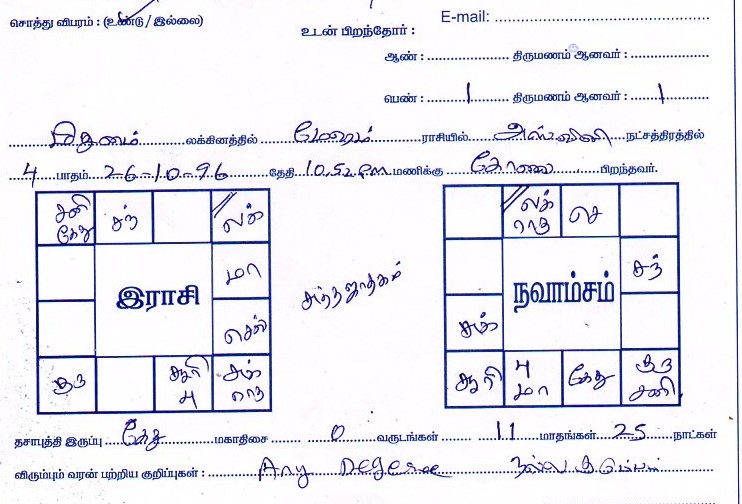 சொத்து விபரம் : (உண்டு / இல்லை)
E-mail: ........................
உடன் பிறந்தோர் :
ஆண் : .................. திருமணம் ஆனவர் : ..................
பெண் : 1 திருமணம் ஆனவர் : 1
மிதுனம் லக்கினத்தில் மேஷம் ராசியில் அஸ்வினி நட்சத்திரத்தில்
4 பாதம் 26-10-96 தேதி 10.52 PM மணிக்கு கோவை பிறந்தவர்.
சனி கேது சந் லக் லக் ராகு செ
மா சந்
இராசி சுத்த ஜாதகம் நவாம்சம்
செவ் சுக்
குரு சூரி பு சுக் ராகு சூரி பு மா கேது குரு சனி
தசாபுத்தி இருப்பு கேது மகாதிசை 0 வருடங்கள் 11 மாதங்கள் 25 நாட்கள்
விரும்பும் வரன் பற்றிய குறிப்புகள் : Any Degree நல்ல குடும்பம்